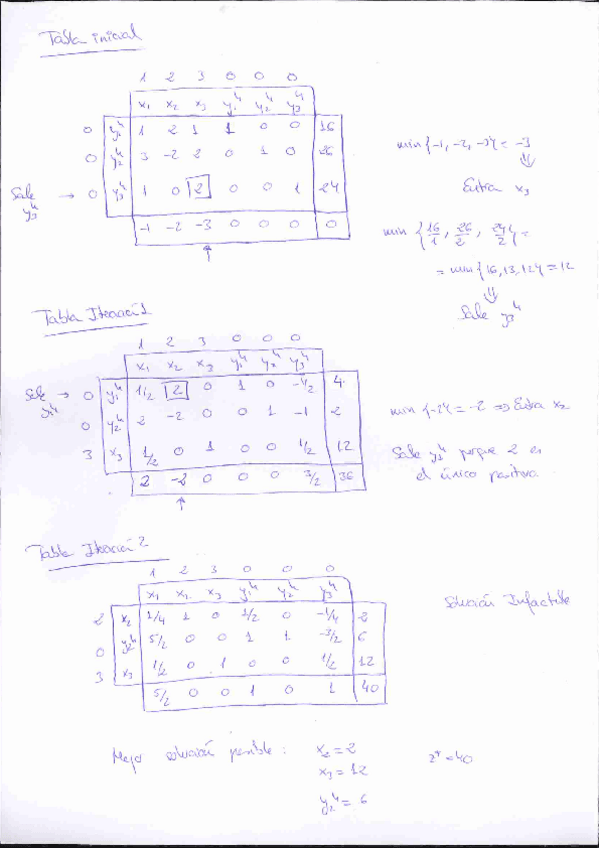 Tabla inicial
1 2 3 0 0 0
x₁ x₂ x₃ y₁ʰ y₂ʰ y₃ʰ
0 y₁ʰ 1 2 1 1 0 0 16
0 y₂ʰ 3 -2 2 0 1 0 26
Sale y₃ʰ → 0 y₃ʰ 1 0 2 0 0 1 24
-1 -2 -3 0 0 0 0
↑
min {-1, -2, -3} = -3
⇓
Entra x₃
min {16/1, 26/2, 24/2} =
= min {16, 13, 12} = 12
⇓
Sale y₃ʰ
Tabla Iteració 1
1 2 3 0 0 0
x₁ x₂ x₃ y₁ʰ y₂ʰ y₃ʰ
Sale y₁ʰ → 0 y₁ʰ 1/2 2 0 1 0 -1/2 4
0 y₂ʰ 2 -2 0 0 1 -1 2
3 x₃ 1/2 0 1 0 0 1/2 12
2 -2 0 0 0 3/2 36
↑
min {-2} = -2 ⇒ Entra x₂
Sale y₁ʰ porque 2 es
el único positivo
Tabla Iteració 2
1 2 3 0 0 0
x₁ x₂ x₃ y₁ʰ y₂ʰ y₃ʰ
2 x₂ 1/4 1 0 1/2 0 -1/4 2
0 y₂ʰ 5/2 0 0 1 1 -3/2 6
3 x₃ 1/2 0 1 0 0 1/2 12
5/2 0 0 1 0 1 40
Solución Infactible
Mejor solución posible: x₂ = 2
x₃ = 12
y₂ʰ = 6
z* = 40